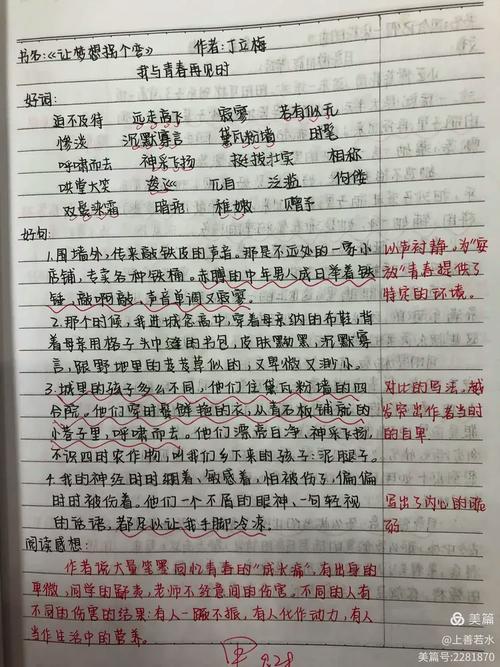 书名:《让梦想拐个弯》 作者:丁立梅
我与青春再见时
好词:
迫不及待 远走高飞 寂寥 若有似无
惨淡 沉默寡言 黛瓦粉墙 时髦
呼啸而去 神采飞扬 挺拔壮实 相称
哄堂大笑 兀自 泛滥 佝偻
双鬓染霜 暗弱 稚嫩 赠予
好句:
1.围墙外,传来敲铁皮的声音。那是不远处的一家小
店铺,专卖各种铁桶。赤膊的中年男人成日举着铁
锤,敲啊敲,声音单调又寂寥。
以声衬静。为"安
放"青春提供了
特定的环境。
2.那个时候,我进城念高中,穿着母亲纳的布鞋,背
着母亲用格子头巾缝的书包,皮肤黝黑,沉默寡
言,跟野地里的芨芨草似的,又卑微又渺小。
3.城里的孩子多么不同,他们住黛瓦粉墙的四
合院。他们穿时髦鲜艳的衣,从青石板铺就的
小巷子里,呼啸而去。他们漂亮白净,神采飞扬,
不识四时农作物,叫我们乡下来的孩子:泥腿子。
对比的写法。越
发突出作者当时
的自卑
4.我的神经时时绷着,敏感着,怕被伤了,偏偏
时时被伤着。他们一个不屑的眼神,一句轻视
的话语,都足以让我手脚冷凉。
写出了内心的脆
弱
阅读感想:
作者浇大量笔墨回忆青春的"成长痛",有出身的
卑微,同学的鄙夷,老师不经意间的伤害。不同的人有
不同的伤害的结果:有人一蹶不振,有人化作动力,有人
当作生活中的营养。
9.28
美篇
@上善若水
美篇号:2281870